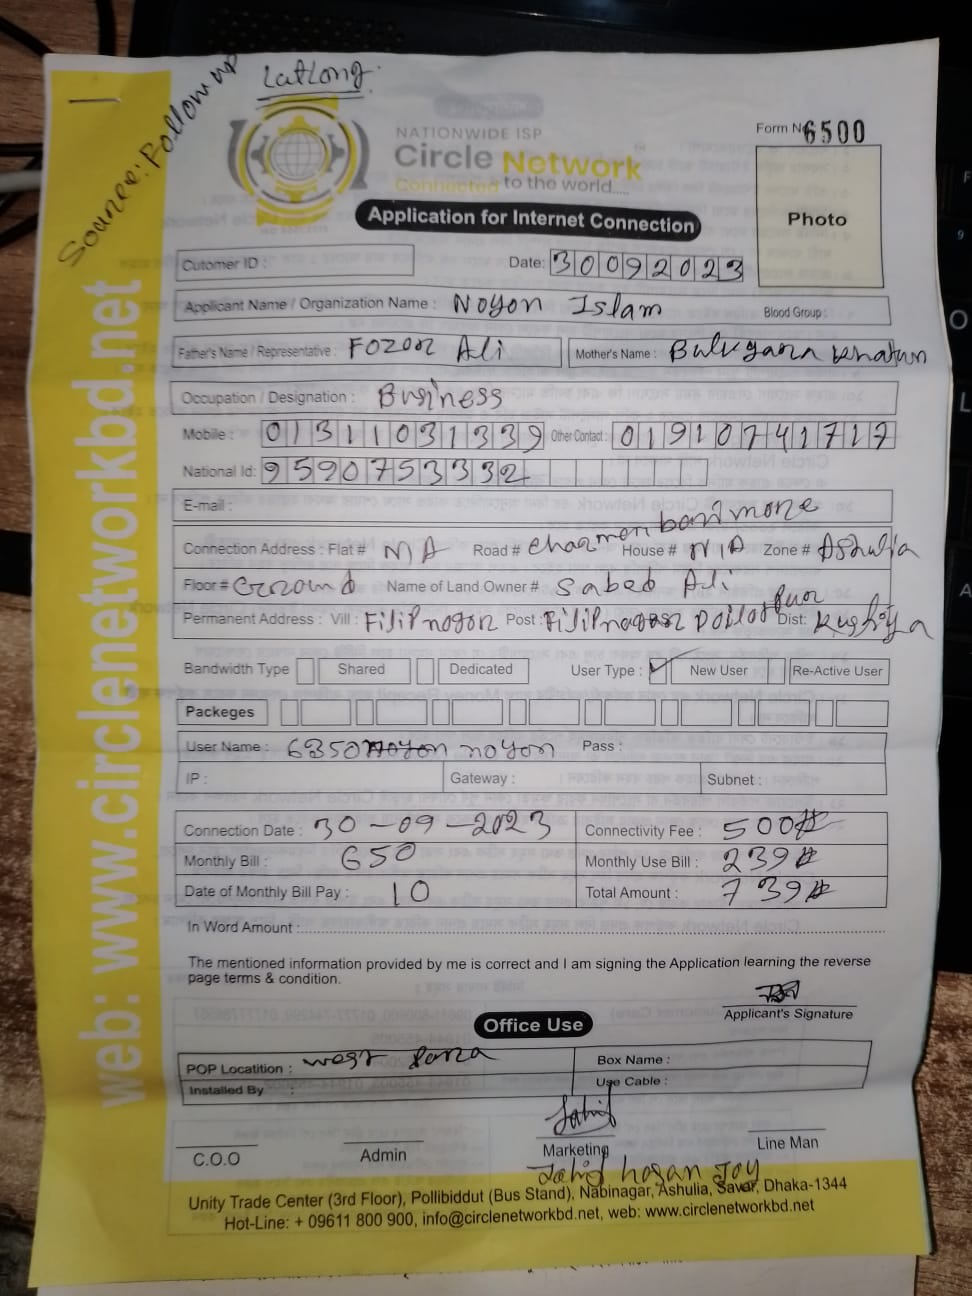 Latlong
Source: Follow up
NATIONWIDE ISP
Circle Network
Connected to the world.....
Form No 6500
Photo
Application for Internet Connection
Cutomer ID :
Date: 30092023
Applicant Name / Organization Name : Noyon Islam Blood Group :
Father's Name / Representative : Fozor Ali Mother's Name : Bulugana Khatun
Occupation / Designation : Business
Mobile : 01311031339 Other Contact : 01910741717
National Id: 9590753332
E-mail :
Connection Address : Flat # N/A Road # Charmen bari more House # N/A Zone # Ashulia
Floor # Ground Name of Land Owner # Sabed Ali
Permanent Address : Vill : Filipnogor Post : Filipnogor Dist: Kushtya
Bandwidth Type Shared Dedicated User Type : ✓ New User Re-Active User
Packeges
User Name : 6350 noyon Pass :
IP : Gateway : Subnet :
Connection Date : 30-09-2023 Connectivity Fee : 500
Monthly Bill : 650 Monthly Use Bill : 239
Date of Monthly Bill Pay : 10 Total Amount : 739
In Word Amount :
The mentioned information provided by me is correct and I am signing the Application learning the reverse
page terms & condition.
Applicant's Signature
Office Use
POP Locatition : west para Box Name :
Installed By : Use Cable :
Jahid
C.O.O Admin Marketing Line Man
Jahid hasan Joy
Unity Trade Center (3rd Floor), Pollibiddut (Bus Stand), Nabinagar, Ashulia, Savar, Dhaka-1344
Hot-Line: + 09611 800 900, info@circlenetworkbd.net, web: www.circlenetworkbd.net
web: www.circlenetworkbd.net